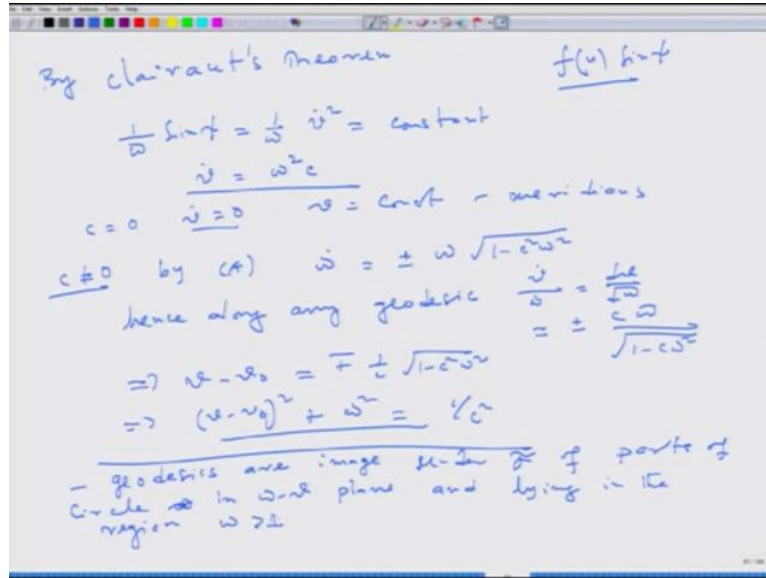 By Clairaut's Theorem f(u) sin ψ
1/ω sin ψ = 1/ω v̇² = constant
v̇ = ω²c
c = 0 v̇ = 0 v = const - meridians
c ≠ 0 by (A) ω̇ = ± ω √(1-c²ω²)
hence along any geodesic v̇/ω̇ = dv/dω
= ± cω/√(1-cω²)
=> v-v₀ = ∓ 1/c √(1-c²ω²)
=> (v-v₀)² + ω² = 1/c²
- geodesics are image under σ̃ of parts of
circle in ω-v plane and lying in the
region ω >1